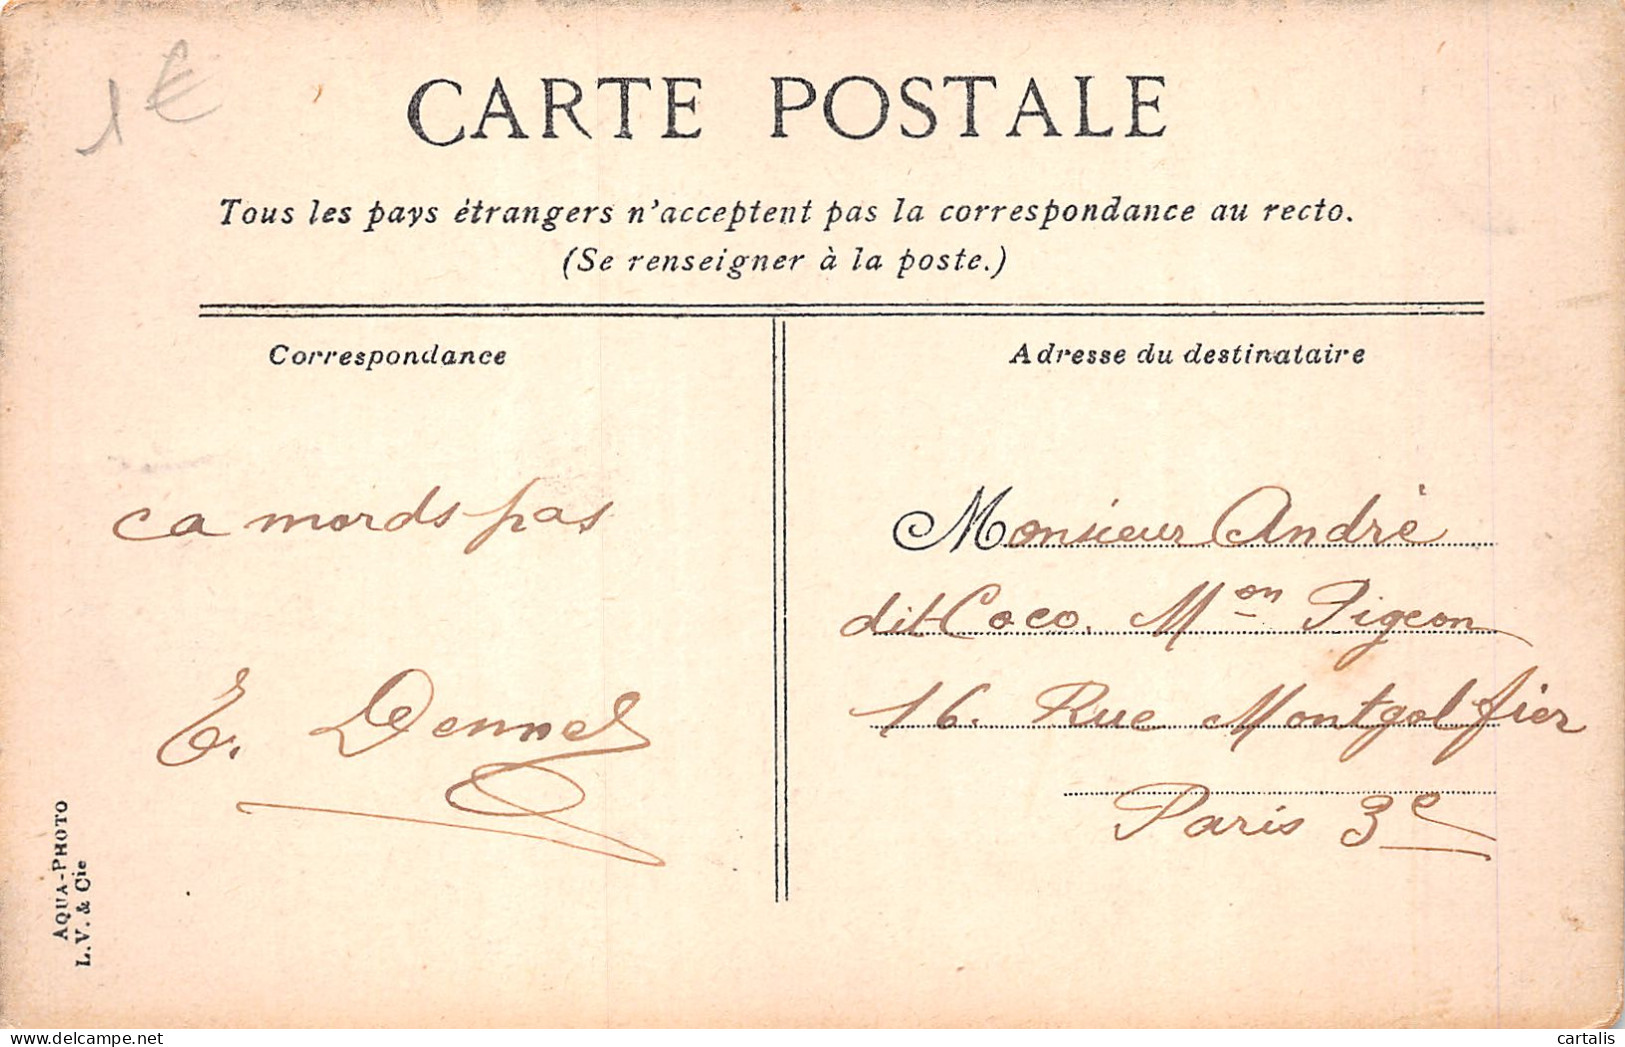 1 €
CARTE POSTALE
Tous les pays étrangers n'acceptent pas la correspondance au recto.
(Se renseigner à la poste.)
Correspondance
ca mords pas
E. Dennel
AQUA-PHOTO
L.V. & Cie
Adresse du destinataire
Monsieur André
dit Coco. Mon Pigeon
16. Rue Montgolfier
Paris 3e
cartalis